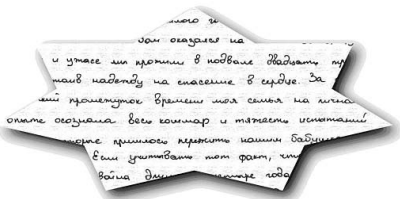 лого и
вом оказался на
и ужасе мы прожили в подвале двадцать
таив надежду на спасение в сердце. За
промежуток времени моя семья на лично
опыте осознала весь кошмар и тяжесть испытаний
которые пришлось пережить нашим бабушк
Если учитывать тот факт, что
война дли четыре года